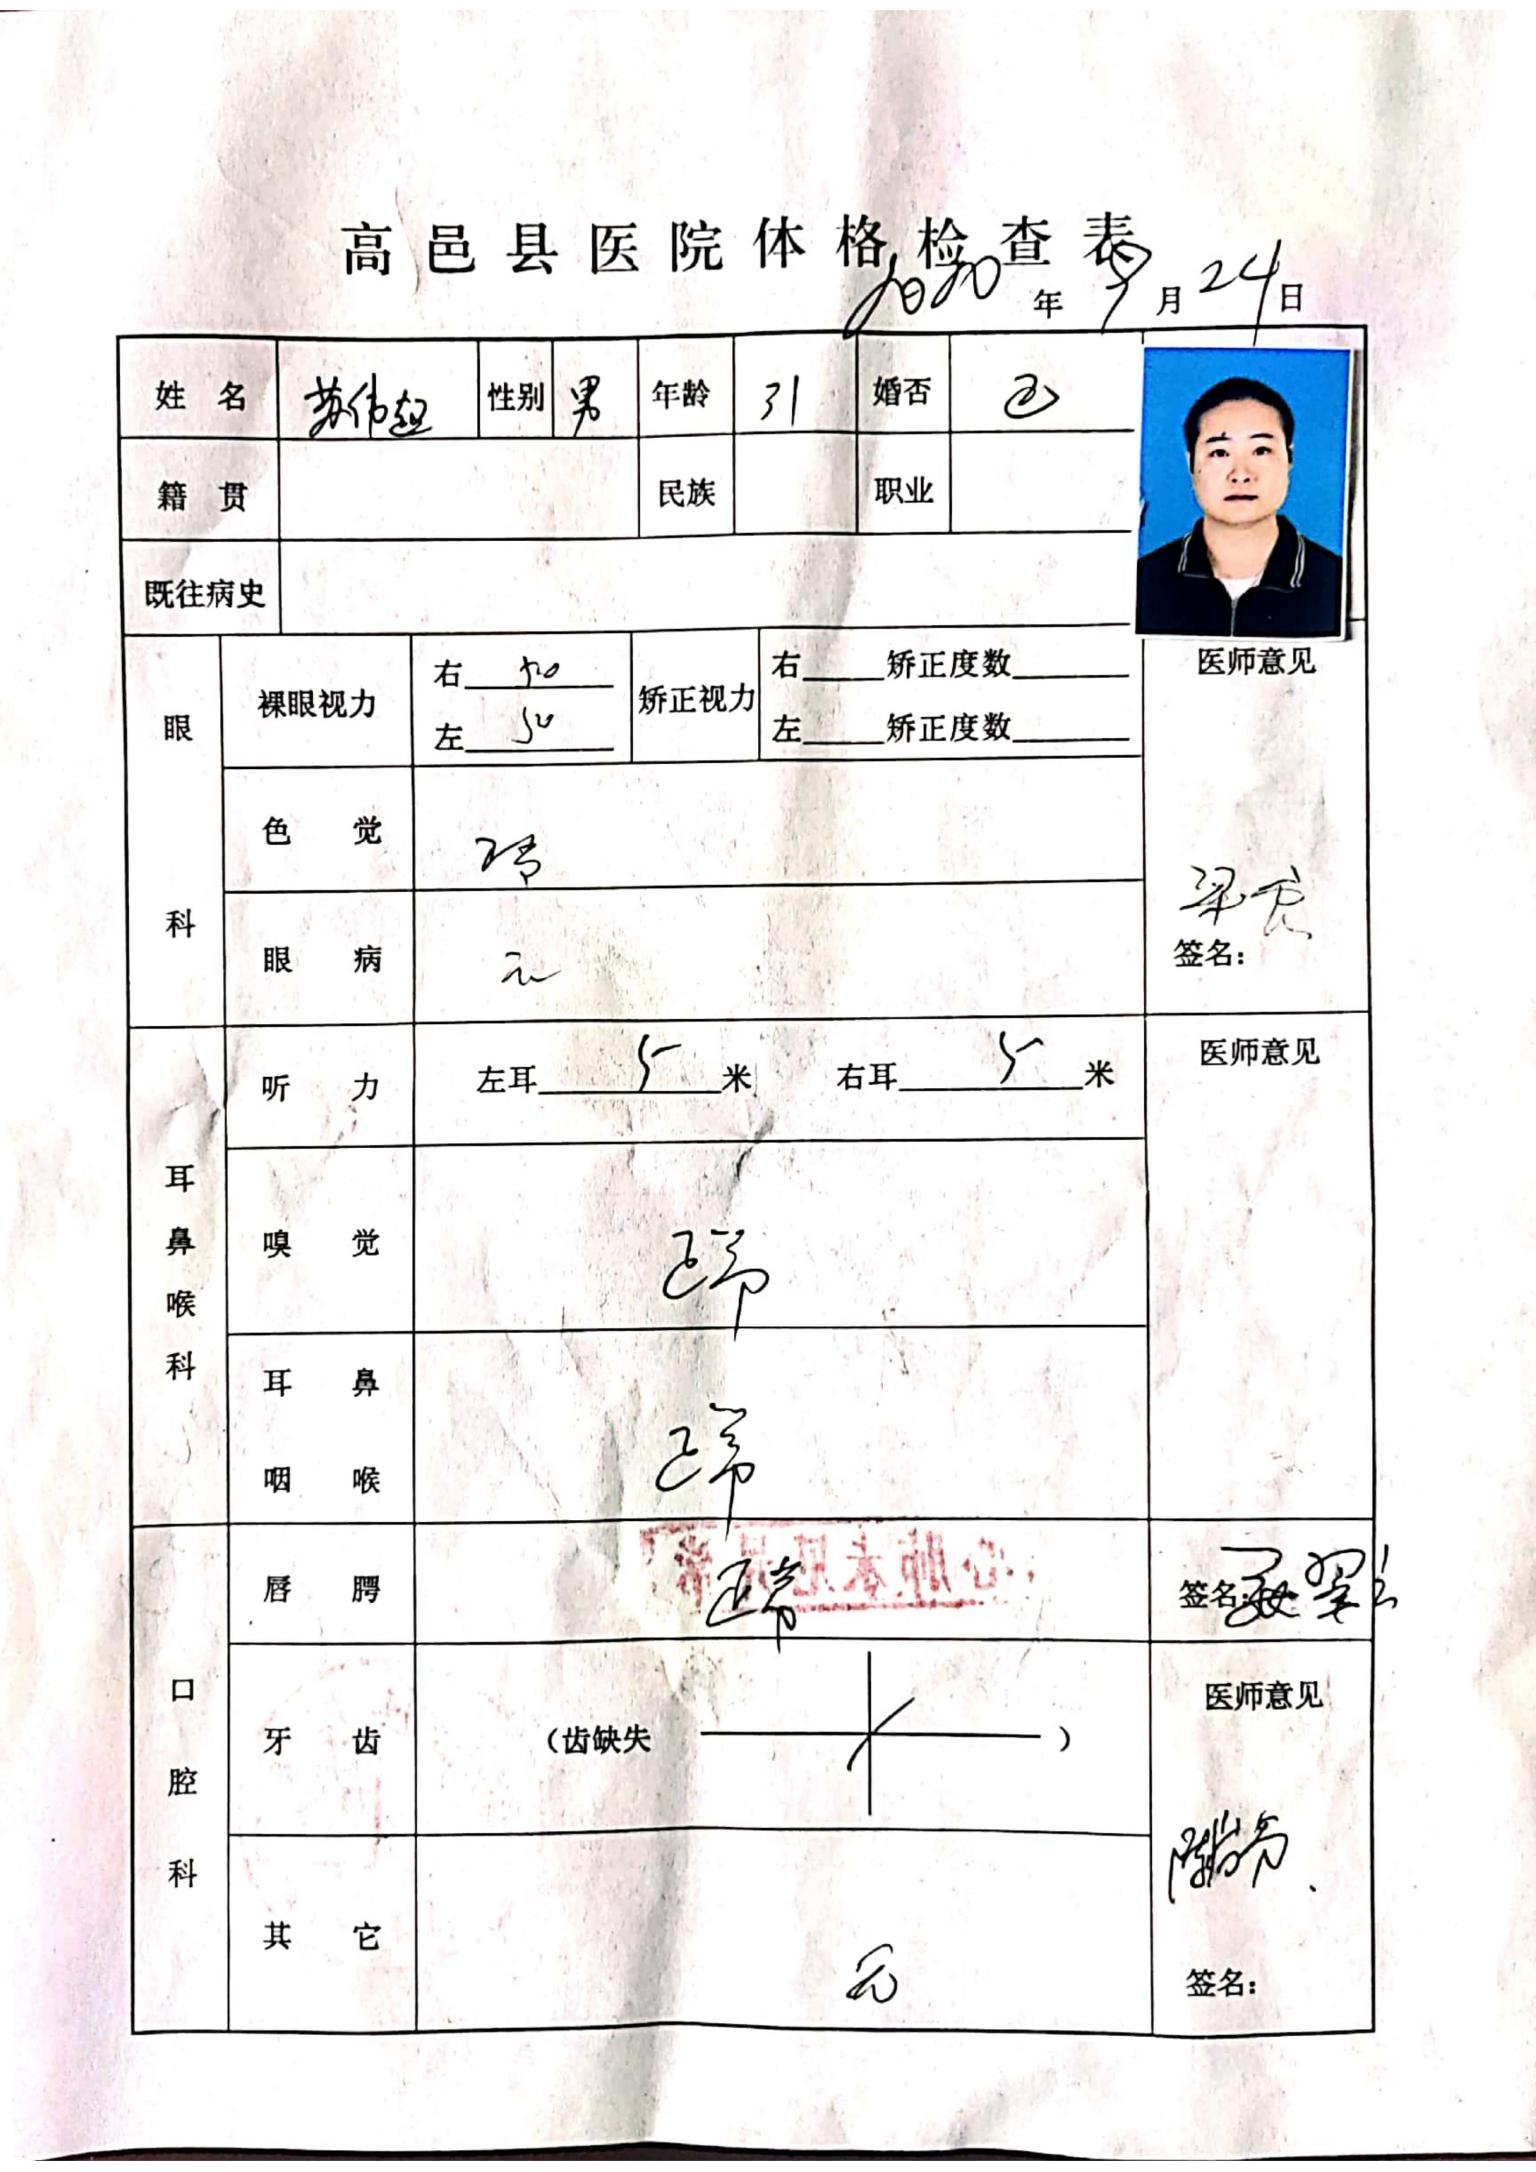 高邑县医院体格检查表
2020年9月24日
姓名 苏伟超 性别 男 年龄 31 婚否 已
籍贯 民族 职业
既往病史
眼科
裸眼视力 右 5.0 矫正视力 右 矫正度数
左 5.0 左 矫正度数
医师意见
色觉 正常
眼病 无
签名：
耳鼻喉科
听力 左耳 5 米 右耳 5 米
医师意见
嗅觉 正常
耳鼻咽喉 正常
签名：
口腔科
唇腭 正常
心肺未见异常
牙齿 （齿缺失 ）
医师意见
其它 无
签名：